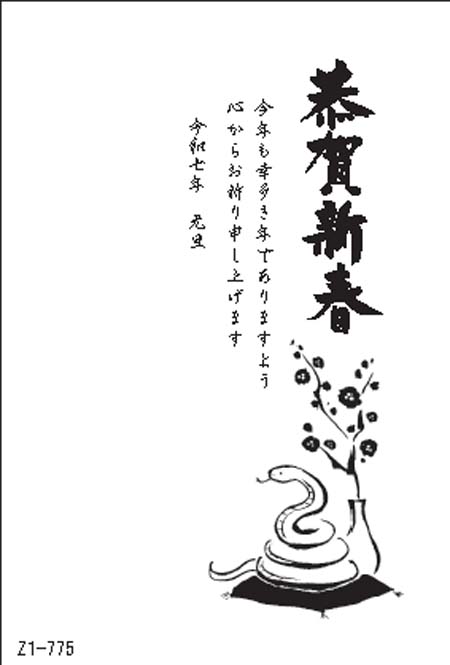 恭賀新春
今年も幸多き年でありますよう
心からお祈り申し上げます
令和七年 元旦
Z1-775